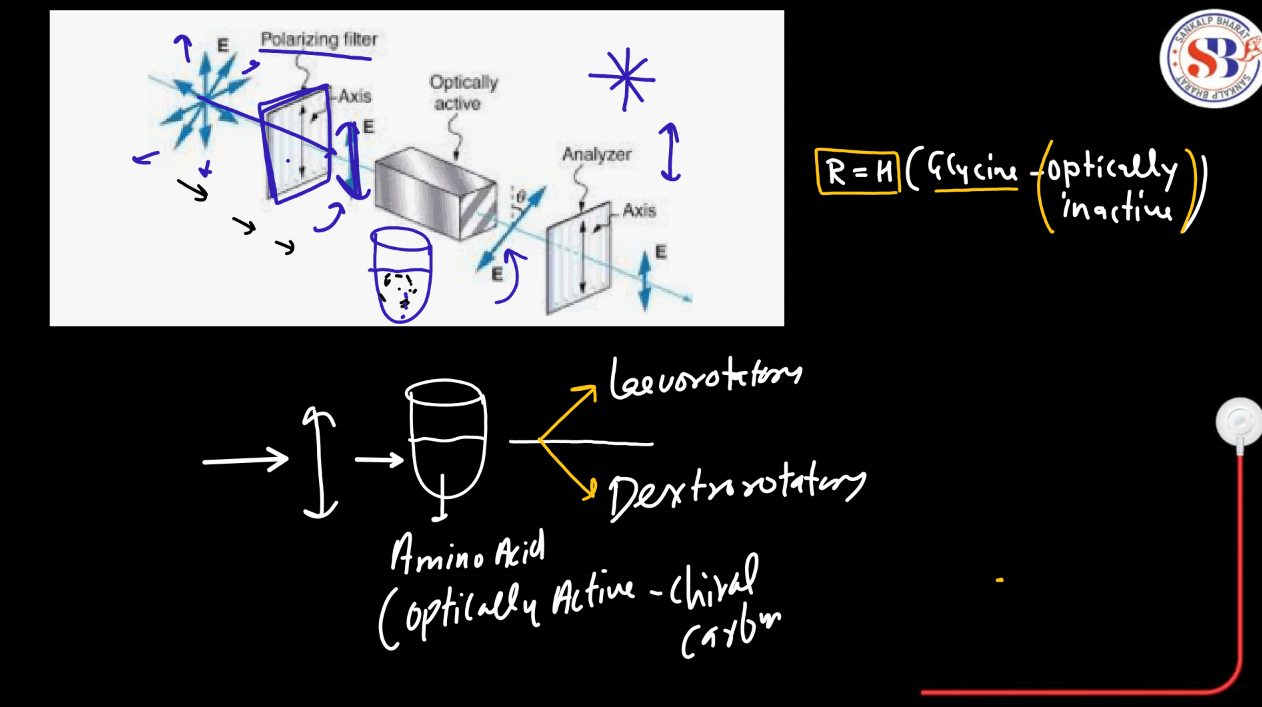 Polarizing filter
E
Axis
E
Optically
active
Analyzer
Axis
θ
E
E
SANKALP BHARAT
SB
SANKALP BHARAT
R = H (Glycine - (optically
inactive))
Laevorotatory
Dextrorotatory
Amino Acid
(optically Active - chiral
carbon